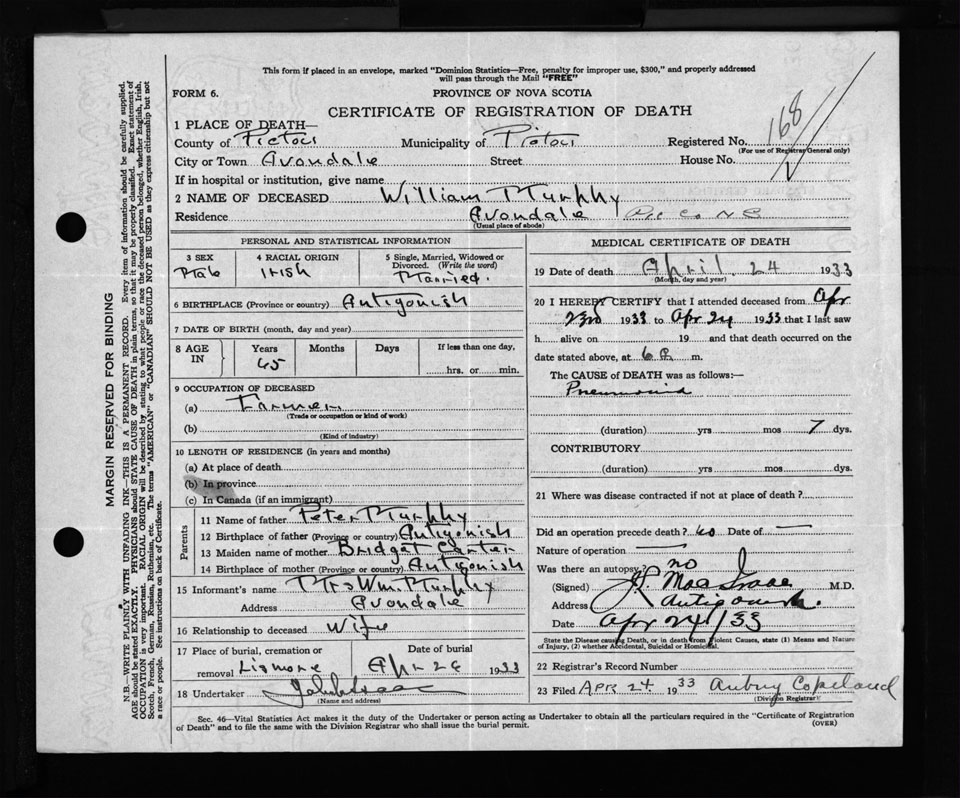 This form if placed in an envelope, marked "Dominion Statistics—Free, penalty for improper use, $300," and properly addressed
will pass through the Mail "FREE"
FORM 6. PROVINCE OF NOVA SCOTIA
CERTIFICATE OF REGISTRATION OF DEATH
168
1 PLACE OF DEATH—
County of Pictou Municipality of Pictou Registered No.
(For use of Registrar General only)
City or Town Avondale Street House No.
If in hospital or institution, give name
2 NAME OF DECEASED William Murphy
Residence Avondale Pic Co N S
(Usual place of abode)
PERSONAL AND STATISTICAL INFORMATION
3 SEX Male
4 RACIAL ORIGIN Irish
5 Single, Married, Widowed or
Divorced. (Write the word)
Married.
6 BIRTHPLACE (Province or country) Antigonish
7 DATE OF BIRTH (month, day and year)
8 AGE IN Years Months Days If less than one day,
65 hrs. or min.
9 OCCUPATION OF DECEASED
(a) Farmer
(Trade or occupation or kind of work)
(b)
(Kind of industry)
10 LENGTH OF RESIDENCE (in years and months)
(a) At place of death
(b) In province
(c) In Canada (if an immigrant)
Parents
11 Name of father Peter Murphy
12 Birthplace of father (Province or country) Antigonish
13 Maiden name of mother Bridget Carter
14 Birthplace of mother (Province or country) Antigonish
15 Informant's name Mrs Wm. Murphy
Address Avondale
16 Relationship to deceased Wife
17 Place of burial, cremation or Date of burial
removal Lismore Apr 26 1933
18 Undertaker
(Name and address)
MEDICAL CERTIFICATE OF DEATH
19 Date of death April 24 1933
(Month, day and year)
20 I HEREBY CERTIFY that I attended deceased from Apr
23rd 1933 to Apr 24 1933 that I last saw
h alive on 19 and that death occurred on the
date stated above, at 6 m.
The CAUSE of DEATH was as follows:—
Pneumonia
(duration) yrs mos 7 dys.
CONTRIBUTORY
(duration) yrs. mos. dys.
21 Where was disease contracted if not at place of death?
Did an operation precede death? no Date of —
Nature of operation —
Was there an autopsy? no
(Signed) MacIsaac M.D.
Address Antigonish.
Date Apr 24/33
State the Disease causing Death, or in death from Violent Causes, state (1) Means and Nature
of Injury, (2) whether Accidental, Suicidal or Homicidal.
22 Registrar's Record Number
23 Filed APR 24 1933 Aubrey Copeland
(Division Registrar)
Sec. 46—Vital Statistics Act makes it the duty of the Undertaker or person acting as Undertaker to obtain all the particulars required in the "Certificate of Registration
of Death" and to file the same with the Division Registrar who shall issue the burial permit. (OVER)
MARGIN RESERVED FOR BINDING
N.B.—WRITE PLAINLY WITH UNFADING INK—THIS IS A PERMANENT RECORD. Every item of information should be carefully supplied.
AGE should be stated EXACTLY. PHYSICIANS should STATE CAUSE OF DEATH in plain terms, so that it may be properly classified. Exact statement of
OCCUPATION is very important. RACIAL ORIGIN will be described by stating to what people or race the deceased person belonged, whether English, Irish,
Scotch, French, German, Russian, Ruthenian, etc. The terms "AMERICAN" or "CANADIAN" SHOULD NOT BE USED as they express citizenship but not
a race or people. See instructions on back of Certificate.